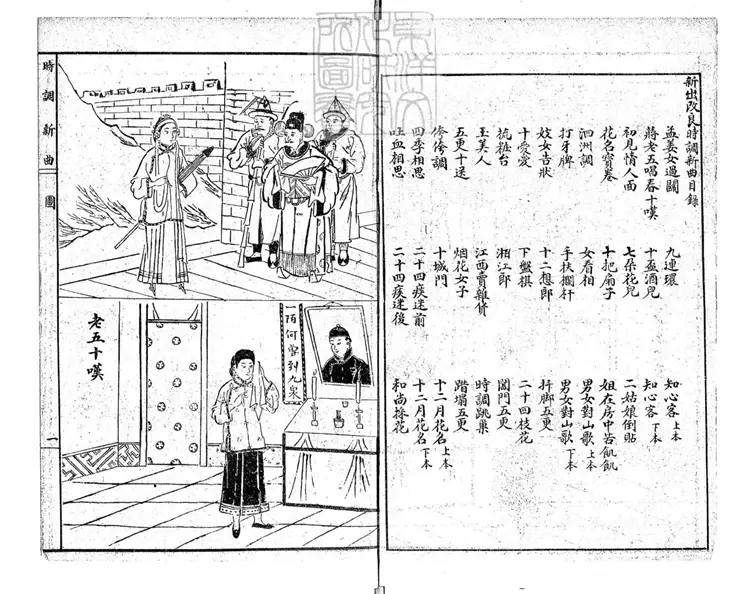 新出改良時調新曲目錄
孟姜女過關
蔣老五唱春十嘆
初見情人面
花名寶卷
泗洲調
打牙牌
妓女告狀
十愛愛
梳粧台
玉美人
五更十送
俢俢調
四季相思
吐血相思
九連環
十盃酒兒
七朵花兒
十把扇子
女看相
手扶攔杆
十二想郎
下盤棋
湘江郎
江西賣雜貨
烟花女子
十城門
二十四痰迷前
二十四痰迷後
知心客上本
知心客下本
二姑娘倒貼
姐在房中苦飢飢
男女對山歌上本
男女對山歌下本
扦脚五更
二十四枝花
闔門五更
時調跳巢
踏塌五更
十二月花名上本
十二月花名下本
和尚採花
時調新曲
圖
一
一陌何曾到九泉
老五十嘆